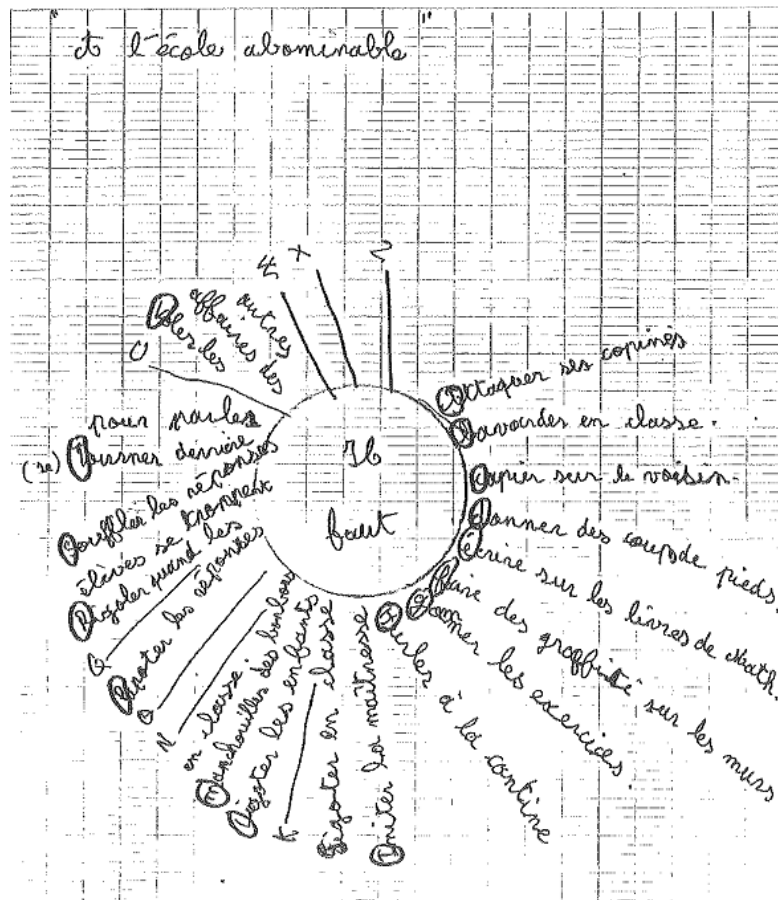 à l'école abominable
Il
faut
Attaquer ses copines
Bavarder en classe.
Copier sur le voisin.
Donner des coups de pieds
écrire sur les livres de Math.
faire des graffiti sur les murs
les exercices.
Hurler à la cantine
Imiter la maîtresse
Gigoter en classe
K
les enfants
Manchouiller des bonbons
en classe.
N
O
les réponses
Q
Rigoler quand les
élèves se trompent
Souffler les réponses
(se) Tourner derrière
pour parler
U
Voler les
affaires des
autres
W
X
Z